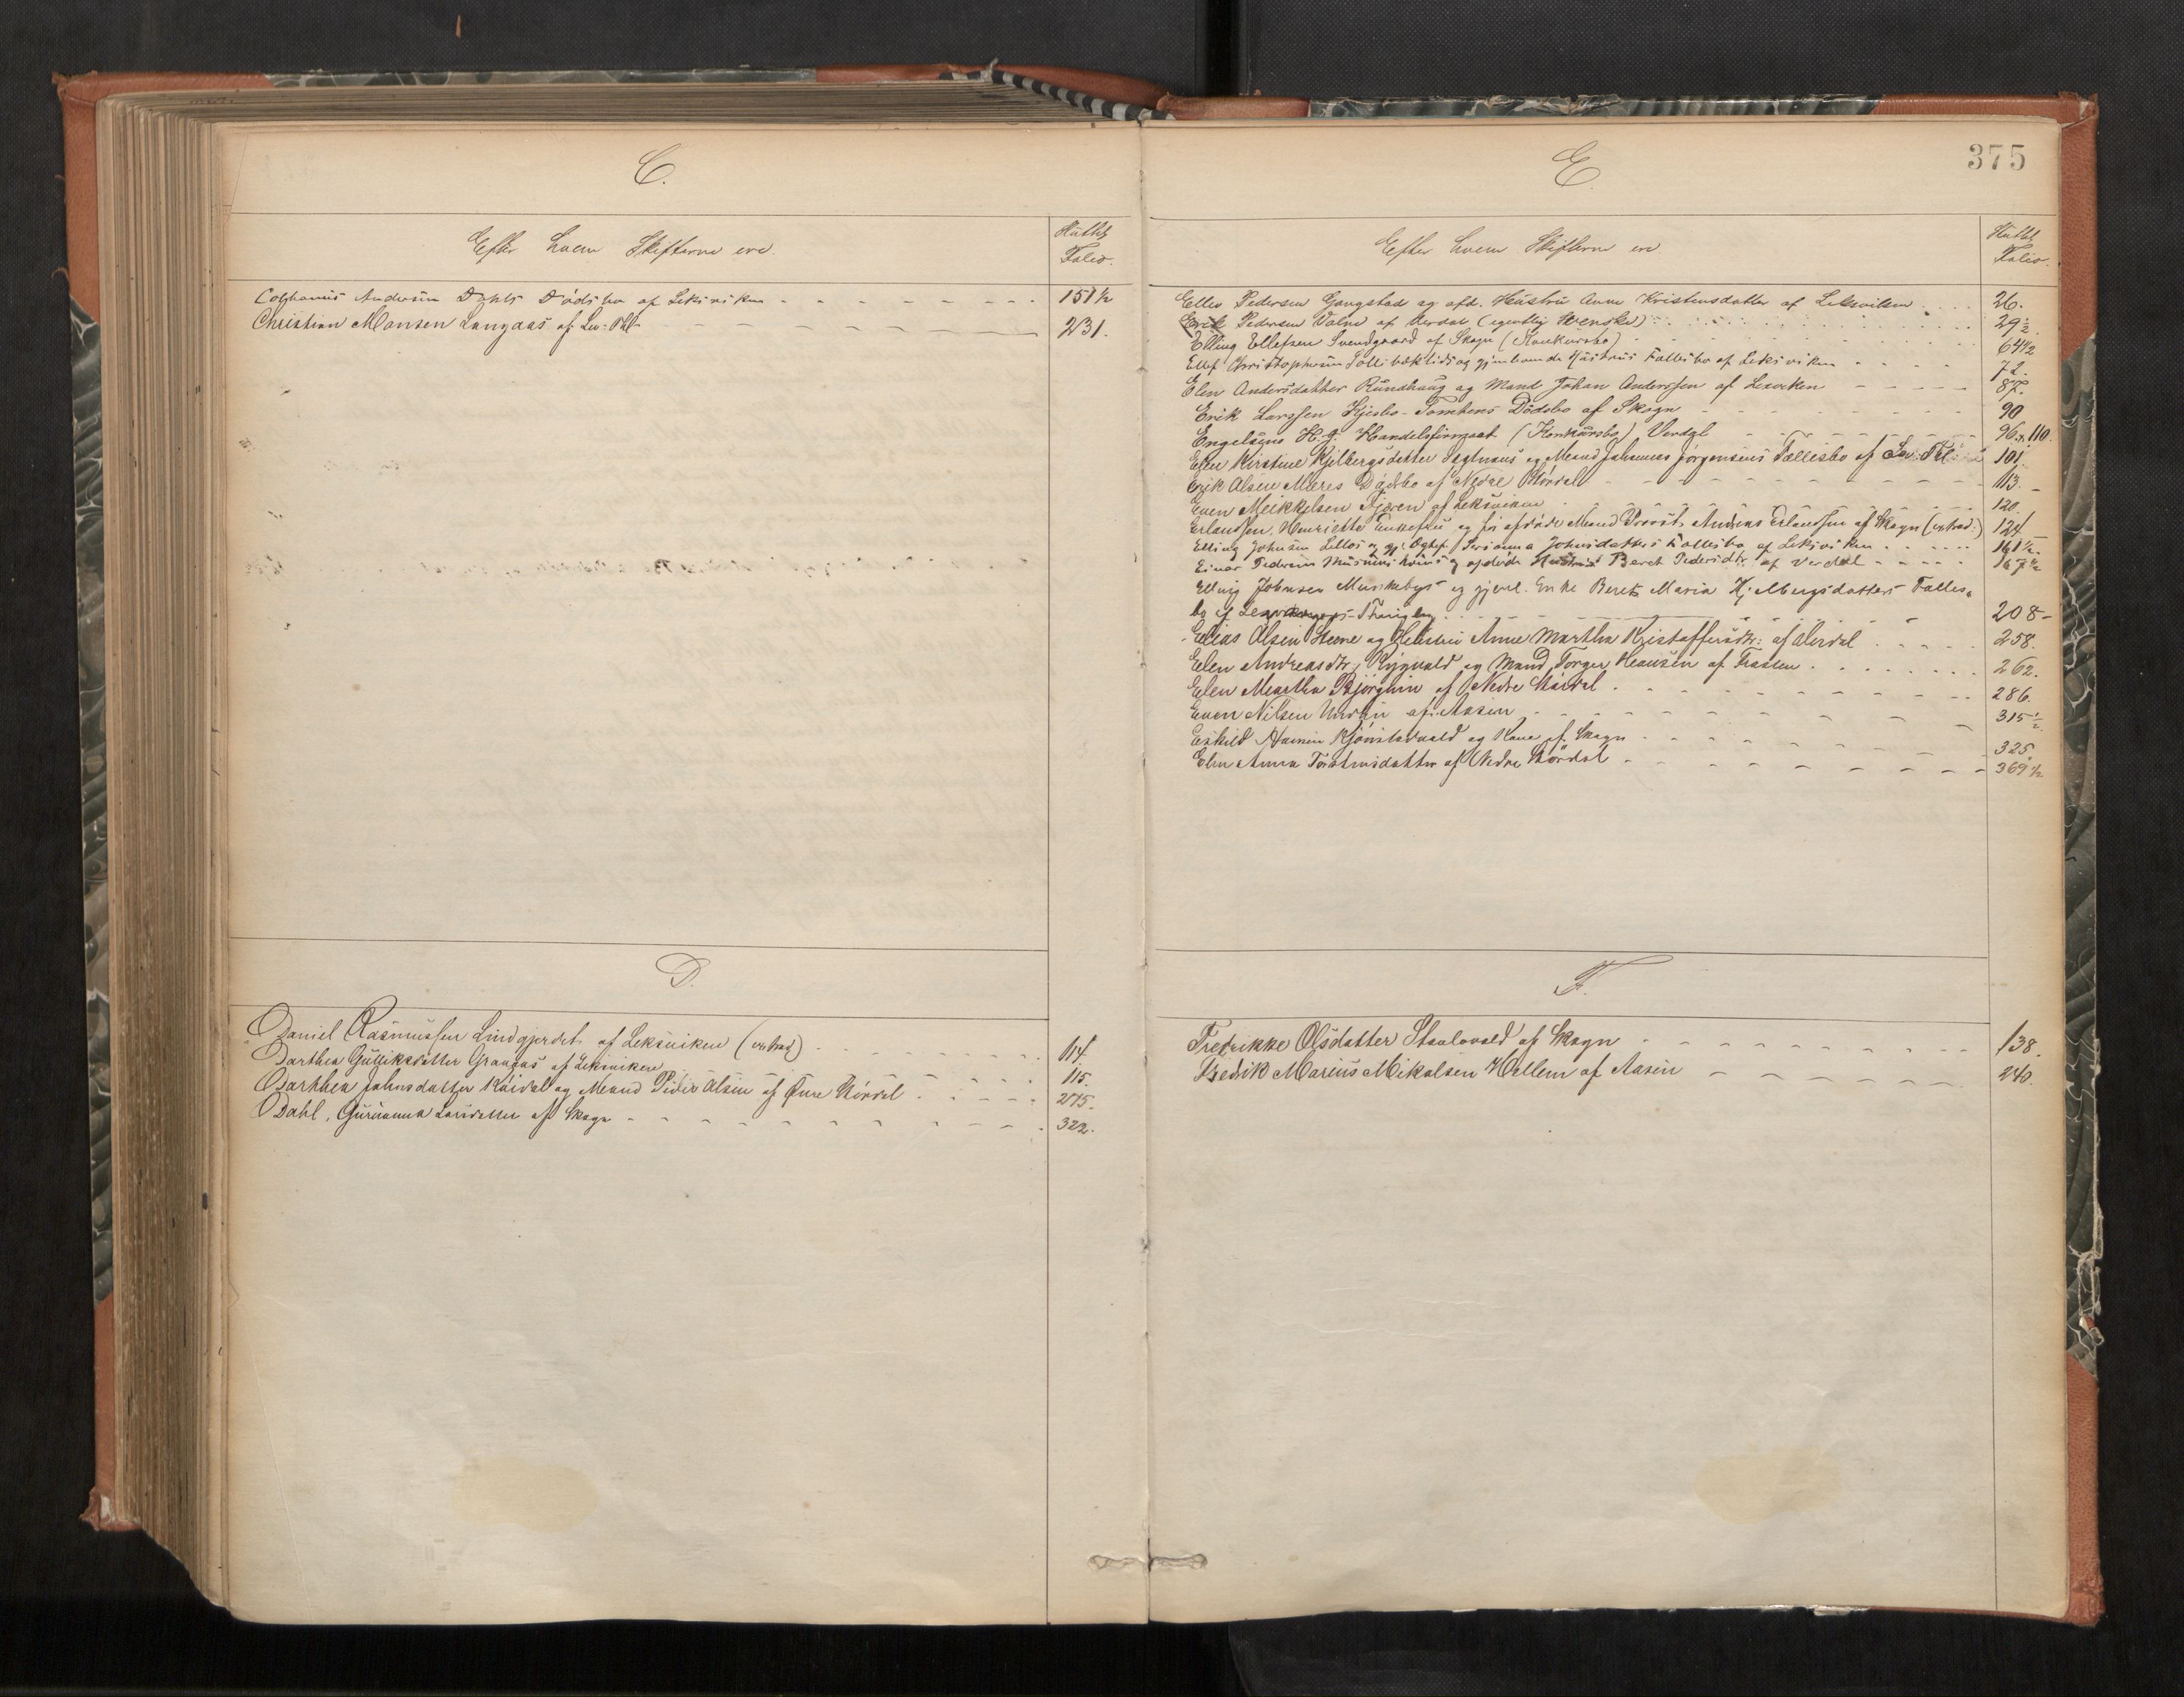 C.
Efter hvem Skifterne ere.
Folio.
Andersen Dahls Dödsbo af Leksviken 151 1/2
Christian Hansen Langaas af Lev: Thl 231.
D.
Daniel Rasmussen Lindgjerdet af Leksviken (extrad) 114.
Darthea Gulliksdatter Granaas af Leksviken 115.
Darthea Johnsdatter Kaidal og Mand Peder Olsen af Övre Stördal 275.
Dahl, Gurianna Larsdatter af Skogn 322.
E.
375
Efter hvem Skifterne ere
Folio.
Ellev Pedersen Gangstad og afd. Hustru Anne Kristensdatter af Leksviken 26.
Erik Pedersen Valne af Verdal (egentlig Svenske) 29 1/2
Elling Ellefsen Svendgaard af Skogn (Konkursbo) 64 1/2
Ellef Christophersen og gjenlevende Hustrus Fællesbo af Leksviken 72.
Elen Andersdatter Rundhaug og Mand Johan Anderssen af 87.
Erik Larssen Hjesbo-Tomtens Dödsbo af Skogn 90
Engelsens H. J. Handelsfirmaet (Konkursbo) Verdal 96. 110.
Elen Kirstine Kjelbergsdatter og Mand Johannes Jørgensens Fællesbo af Lev: Thl: 101.
Erik Olsen Mæres Dødsbo af Nedre Stördal 113.
Even Meikkelsen af Leksviken 120.
Erlandsen, Henriette Enkefru og før afdöde Mand Provst Andreas Erlandsen af Skogn (extrad:) 124.
Elling Johnsen og Serianna Johnsdatters Fællesbo af Leksviken 161 1/2.
Einar Pedersen og afdöde Hustrus Beret Pedersdtr. af Verdal 167 1/2
Elling Johnsen Munkebys og gjenl. Enke Beret Maria Hjelbergsdatters Fælles-
bo af Levangers Thinglag 208
Elias Olsen Stene og Hustru Anne Martha Kristoffersdtr: af Verdal 258.
Elen Andreasdtr. Nygvald og Mand Torger Hansen af Frosten 262.
Elen Martha Bjørgum af Nedre Stördal 286.
Even Nilsen af Aasen 315 1/2
Eskild Kjönstadvald og Kone af Skogn 325
Elen Anna Torstensdatter af Nedre Stördal 369 1/2
F.
Fredrikke Olsdatter Staalvald af Skogn 138.
Fredrik Marius Mikalsen Hallem af Aasen 240.